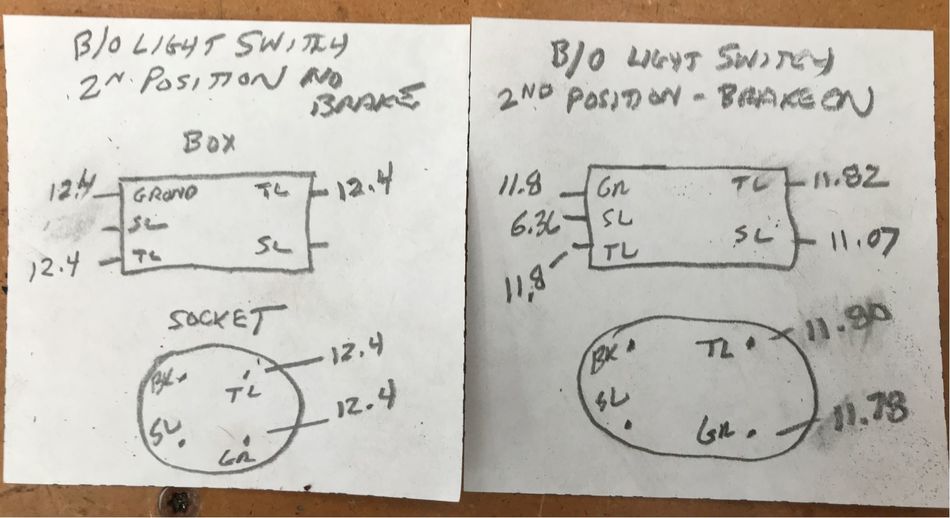 B/O LIGHT SWITCH
2ND POSITION NO
BRAKE
BOX
12.4 GROND TL 12.4
SL
12.4 TL SL
SOCKET
BK TL 12.4
SL GR 12.4
B/O LIGHT SWITCH
2ND POSITION - BRAKE ON
11.8 GR TL 11.82
6.36 SL
11.8 TL SL 11.07
BK TL 11.80
SL GR 11.78